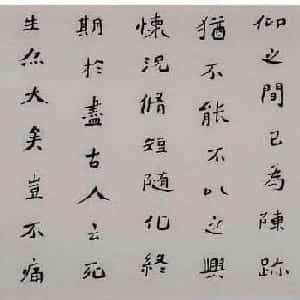 仰之間已為陳跡
猶不能不以之興
懐况脩短随化終
期於盡古人云死
生亦大矣豈不痛